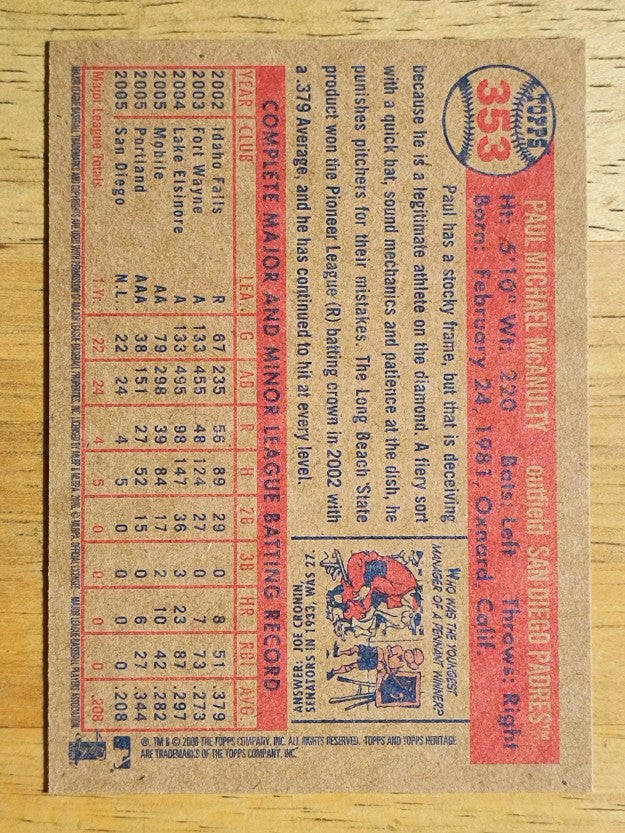 TOPPS
353
PAUL MICHAEL McANULTY outfield SAN DIEGO PADRES™
Ht: 5'10" Wt: 220 Bats: Left Throws: Right
Born: February 24, 1981, Oxnard, Calif.
Paul has a stocky frame, but that is deceiving
because he is a legitimate athlete on the diamond. A fiery sort
with a quick bat, sound mechanics and patience at the dish, he
punishes pitchers for their mistakes. The Long Beach State
product won the Pioneer League (R) batting crown in 2002 with
a .379 Average, and he has continued to hit at every level.
WHO WAS THE YOUNGEST
MANAGER OF A PENNANT WINNER?
ANSWER: JOE CRONIN,
SENATORS, IN 1933, WAS
27.
COMPLETE MAJOR AND MINOR LEAGUE BATTING RECORD
YEAR CLUB LEA. G AB R H 2B 3B HR RBI AVG.
2002 Idaho Falls R 67 235 56 89 29 0 8 51 .379
2003 Fort Wayne A 133 455 48 124 27 0 7 73 .273
2004 Lake Elsinore A 133 495 98 147 36 3 23 87 .297
2005 Mobile AA 79 298 39 84 17 2 10 42 .282
2005 Portland AAA 38 151 27 52 15 0 6 27 .344
2005 San Diego N.L. 22 24 4 5 0 0 0 0 .208
Major League Totals 1 Yr. 22 24 4 5 0 0 0 0 .208
®, TM & © 2006 THE TOPPS COMPANY, INC. ALL RIGHTS RESERVED. TOPPS AND TOPPS HERITAGE
ARE TRADEMARKS OF THE TOPPS COMPANY, INC.
MAJOR LEAGUE BASEBALL TRADEMARKS AND COPYRIGHTS ARE USED WITH PERMISSION OF MAJOR LEAGUE BASEBALL PROPERTIES, INC. © MLBPA OFFICIAL LICENSEE - MAJOR LEAGUE BASEBALL PLAYERS ASSOCIATION